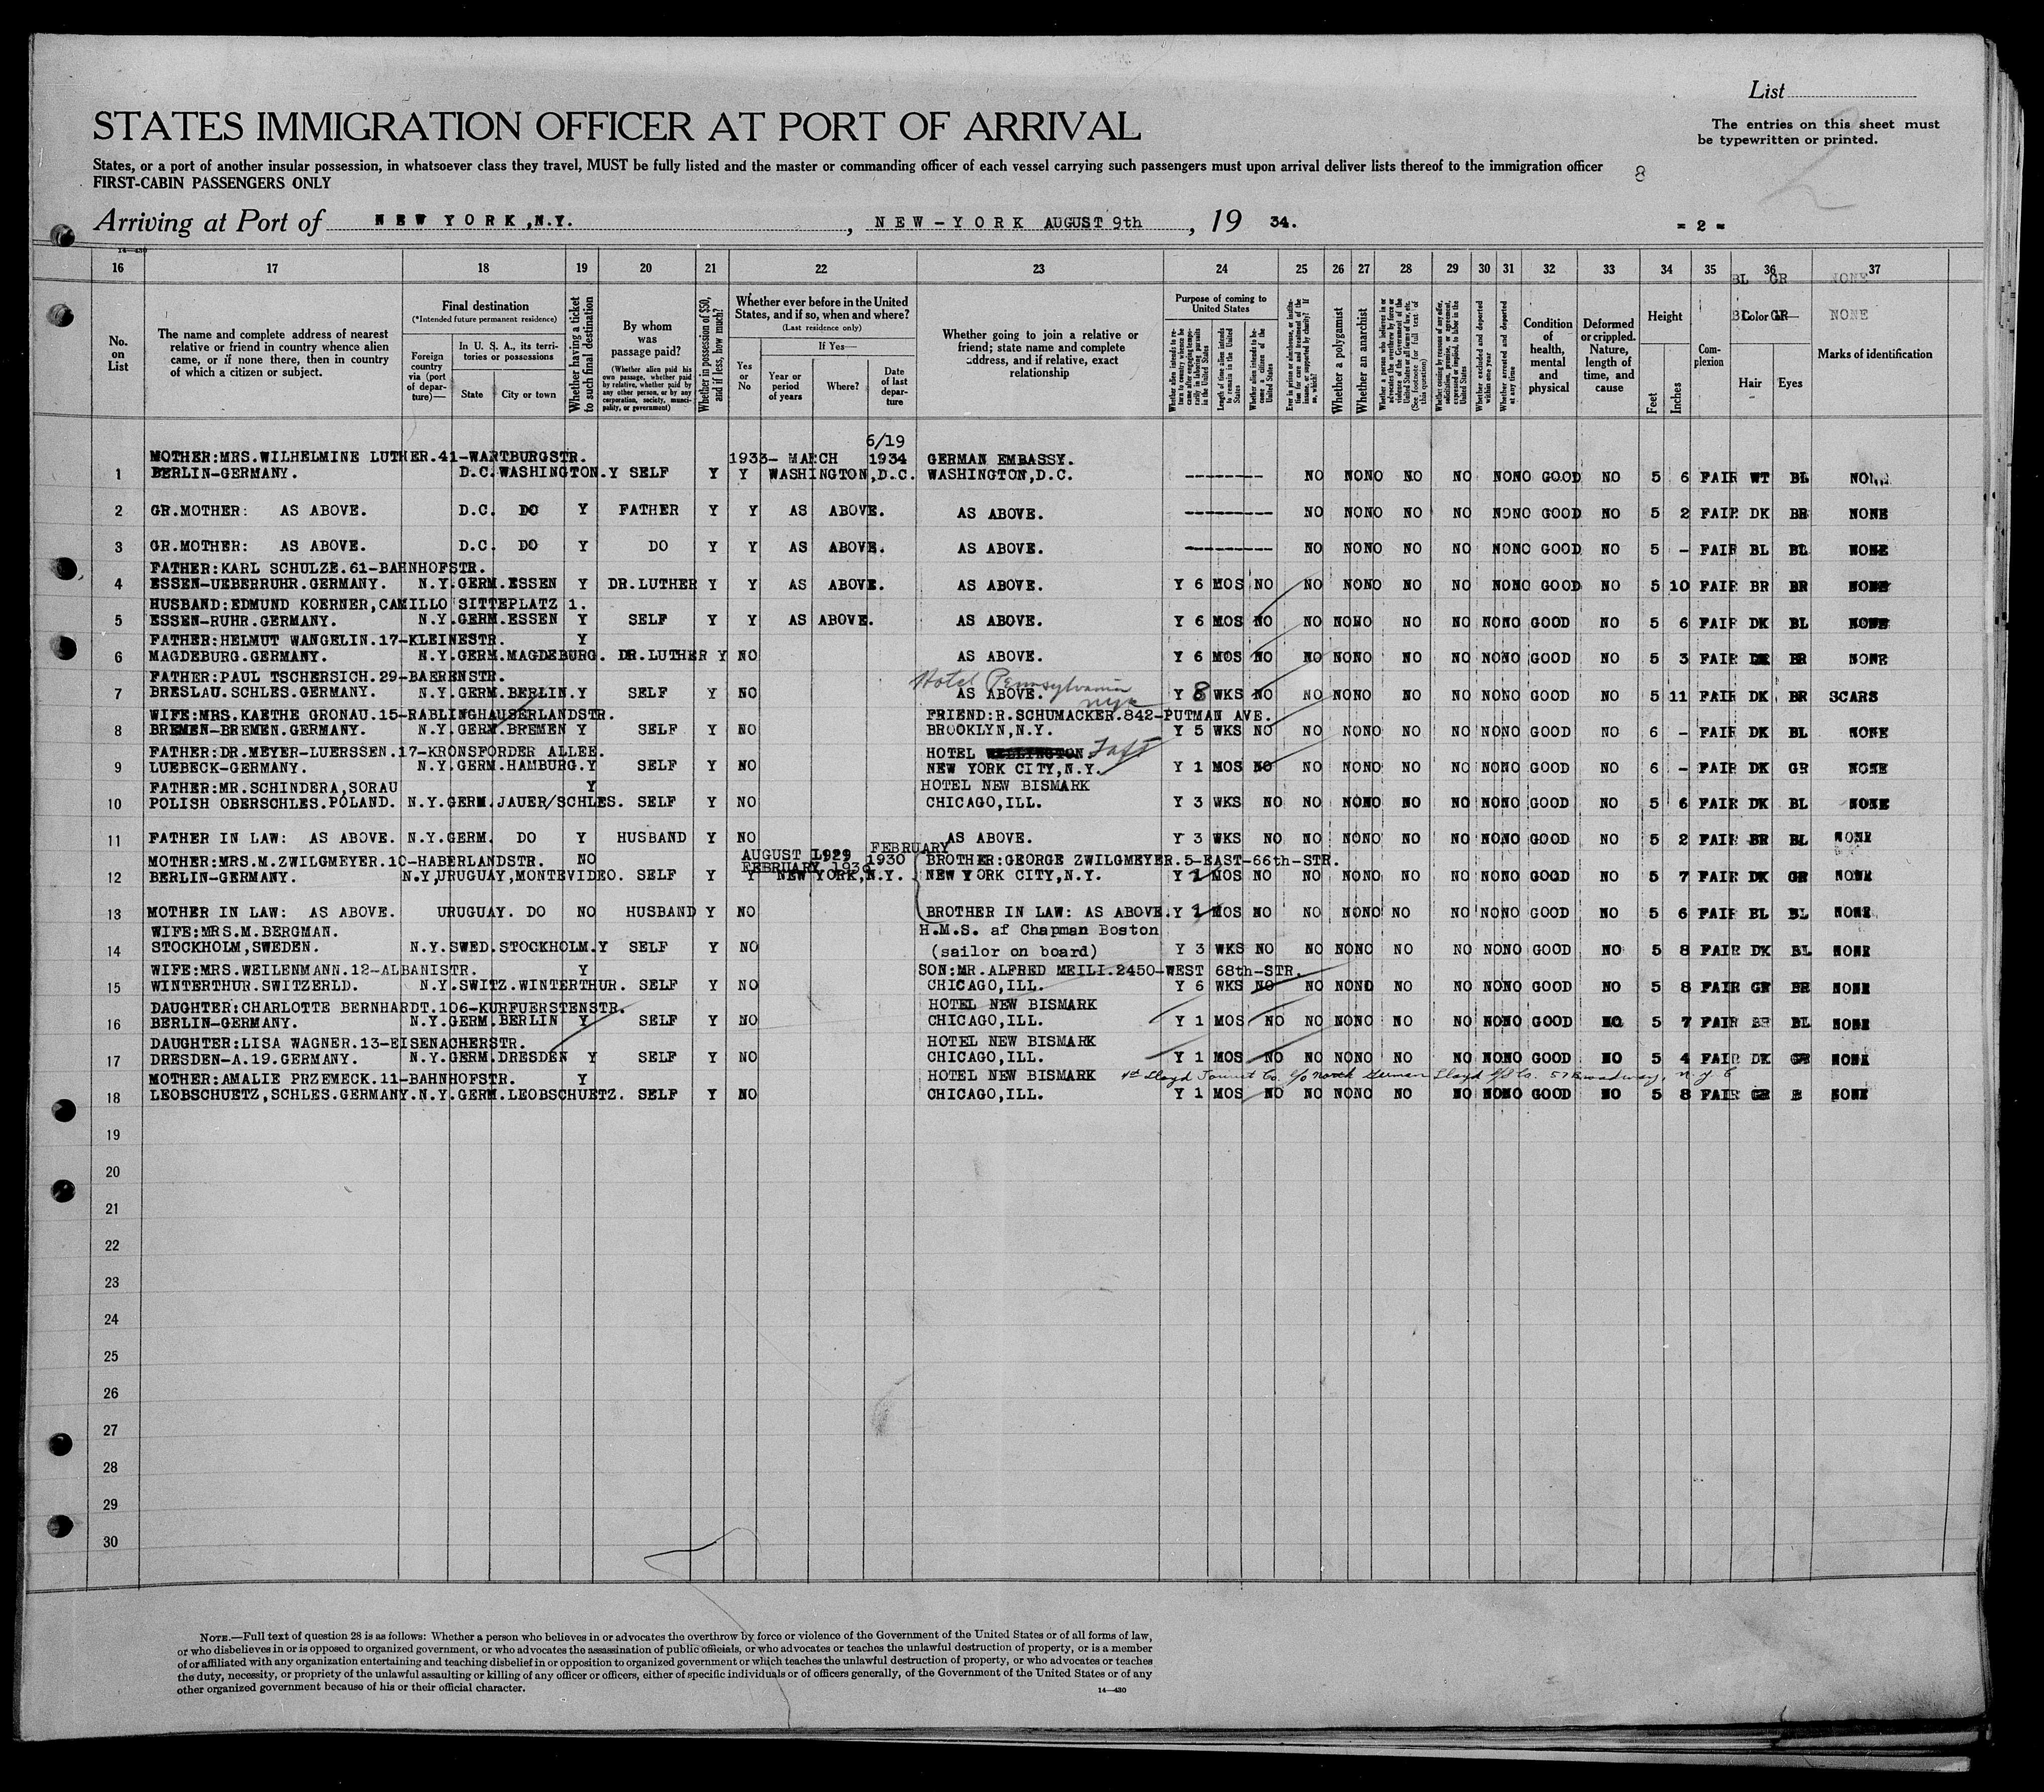 List
STATES IMMIGRATION OFFICER AT PORT OF ARRIVAL
The entries on this sheet must
be typewritten or printed.
2
States, or a port of another insular possession, in whatsoever class they travel, MUST be fully listed and the master or commanding officer of each vessel carrying such passengers must upon arrival deliver lists thereof to the immigration officer
FIRST-CABIN PASSENGERS ONLY
8
Arriving at Port of NEW YORK,N.Y. , NEW-YORK AUGUST 9th , 19 34.
= 2 =
14-430
16 17 18 19 20 21 22 23 24 25 26 27 28 29 30 31 32 33 34 35 36 37
BL GR NONE
BL GR NONE
No. on List
The name and complete address of nearest relative or friend in country whence alien came, or if none there, then in country of which a citizen or subject.
Final destination
(*Intended future permanent residence)
Foreign country via (port of departure)—
In U. S. A., its territories or possessions
State
City or town
Whether having a ticket to such final destination
By whom was passage paid?
(Whether alien paid his own passage, whether paid by relative, whether paid by any other person, or by any corporation, society, municipality, or government)
Whether in possession of $50, and if less, how much?
Whether ever before in the United States, and if so, when and where?
(Last residence only)
Yes or No
If Yes—
Year or period of years
Where?
Date of last departure
Whether going to join a relative or friend; state name and complete address, and if relative, exact relationship
Purpose of coming to United States
Whether alien intends to return to country whence he came after engaging temporarily in laboring pursuits in the United States
Length of time alien intends to remain in the United States
Whether alien intends to become a citizen of the United States
Ever in prison or almshouse, or institution for care and treatment of the insane, or supported by charity? If so, which?
Whether a polygamist
Whether an anarchist
Whether a person who believes in or advocates the overthrow by force or violence of the Government of the United States or all forms of law, etc. (See footnote for full text of this question)
Whether coming by reasons of any offer, solicitation, promise, or agreement, expressed or implied, to labor in the United States
Whether excluded and deported within one year
Whether arrested and deported at any time
Condition of health, mental and physical
Deformed or crippled. Nature, length of time, and cause
Height
Feet
Inches
Complexion
Color of—
Hair
Eyes
Marks of identification
6/19
MOTHER:MRS.WILHELMINE LUTHER.41-WARTBURGSTR. 1933- MARCH 1934 GERMAN EMBASSY.
1 BERLIN-GERMANY. D.C. WASHINGTON. Y SELF Y Y WASHINGTON,D.C. WASHINGTON,D.C. -------- NO NONO NO NO NONO GOOD NO 5 6 FAIR WT BL NONE
2 GR.MOTHER: AS ABOVE. D.C. DO Y FATHER Y Y AS ABOVE. AS ABOVE. --------- NO NONO NO NO NONO GOOD NO 5 2 FAIR DK BR NONE
3 GR.MOTHER: AS ABOVE. D.C. DO Y DO Y Y AS ABOVE. AS ABOVE. --------- NO NONO NO NO NONO GOOD NO 5 - FAIR BL BL NONE
FATHER:KARL SCHULZE.61-BAHNHOFSTR.
4 ESSEN-UEBERRUHR.GERMANY. N.Y.GERM.ESSEN Y DR.LUTHER Y Y AS ABOVE. AS ABOVE. Y 6 MOS NO NO NONO NO NO NONO GOOD NO 5 10 FAIR BR BR NONE
HUSBAND:EDMUND KOERNER,CAMILLO SITTEPLATZ 1.
5 ESSEN-RUHR.GERMANY. N.Y.GERM.ESSEN Y SELF Y Y AS ABOVE. AS ABOVE. Y 6 MOS NO NO NONO NO NO NONO GOOD NO 5 6 FAIR DK BL NONE
FATHER:HELMUT WANGELIN.17-KLEINESTR. Y
6 MAGDEBURG.GERMANY. N.Y.GERM.MAGDEBURG. DR.LUTHER Y NO AS ABOVE. Y 6 MOS NO NO NONO NO NO NONO GOOD NO 5 3 FAIR DK BR NONE
FATHER:PAUL TSCHERSICH.29-BAERENSTR. Hotel Pennsylvania
7 BRESLAU.SCHLES.GERMANY. N.Y.GERM.BERLIN.Y SELF Y NO AS ABOVE. nyc Y 8 WKS NO NO NONO NO NO NONO GOOD NO 5 11 FAIR DK BR SCARS
WIFE:MRS.KAETHE GRONAU.15-RABLINGHAUSERLANDSTR. FRIEND:R.SCHUMACKER.842-PUTMAN AVE.
8 BREMEN-BREMEN.GERMANY. N.Y.GERM.BREMEN Y SELF Y NO BROOKLYN,N.Y. Y 5 WKS NO NO NONO NO NO NONO GOOD NO 6 - FAIR DK BL NONE
FATHER:DR.MEYER-LUERSSEN.17-KRONSFORDER ALLEE. HOTEL WELLINGTON Taft
9 LUEBECK-GERMANY. N.Y.GERM.HAMBURG.Y SELF Y NO NEW YORK CITY,N.Y. Y 1 MOS NO NO NONO NO NO NONO GOOD NO 6 - FAIR DK GR NONE
FATHER:MR.SCHINDERA,SORAU Y HOTEL NEW BISMARK
10 POLISH OBERSCHLES.POLAND. N.Y.GERM.JAUER/SCHLES. SELF Y NO CHICAGO,ILL. Y 3 WKS NO NO NONO NO NO NONO GOOD NO 5 6 FAIR DK BL NONE
11 FATHER IN LAW: AS ABOVE. N.Y.GERM. DO Y HUSBAND Y NO AS ABOVE. Y 3 WKS NO NO NONO NO NO NONO GOOD NO 5 2 FAIR BR BL NONE
AUGUST 1929 FEBRUARY
MOTHER:MRS.M.ZWILGMEYER.10-HABERLANDSTR. NO FEBRUARY 1930 1930 BROTHER:GEORGE ZWILGMEYER.5-EAST-66th-STR.
12 BERLIN-GERMANY. N.Y,URUGUAY,MONTEVIDEO. SELF Y Y NEW YORK,N.Y. NEW YORK CITY,N.Y. Y 1 MOS NO NO NONO NO NO NONO GOOD NO 5 7 FAIR DK GR NONE
13 MOTHER IN LAW: AS ABOVE. URUGUAY. DO NO HUSBAND Y NO BROTHER IN LAW: AS ABOVE. Y 1 MOS NO NO NONO NO NO NONO GOOD NO 5 6 FAIR BL BL NONE
WIFE:MRS.M.BERGMAN. H.M.S. af Chapman Boston
14 STOCKHOLM,SWEDEN. N.Y.SWED.STOCKHOLM.Y SELF Y NO (sailor on board) Y 3 WKS NO NO NONO NO NO NONO GOOD NO 5 8 FAIR DK BL NONE
WIFE:MRS.WEILENMANN.12-ALBANISTR. Y SON:MR.ALFRED MEILI.2450-WEST 68th-STR.
15 WINTERTHUR.SWITZERLD. N.Y.SWITZ.WINTERTHUR. SELF Y NO CHICAGO,ILL. Y 6 WKS NO NO NONO NO NO NONO GOOD NO 5 8 FAIR GR BR NONE
DAUGHTER:CHARLOTTE BERNHARDT.106-KURFUERSTENSTR. HOTEL NEW BISMARK
16 BERLIN-GERMANY. N.Y.GERM.BERLIN Y SELF Y NO CHICAGO,ILL. Y 1 MOS NO NO NONO NO NO NONO GOOD NO 5 7 FAIR BR BL NONE
DAUGHTER:LISA WAGNER.13-EISENACHERSTR. HOTEL NEW BISMARK
17 DRESDEN-A.19.GERMANY. N.Y.GERM.DRESDEN Y SELF Y NO CHICAGO,ILL. Y 1 MOS NO NO NONO NO NO NONO GOOD NO 5 4 FAIR DK GR NONE
MOTHER:AMALIE PRZEMECK.11-BAHNHOFSTR. Y HOTEL NEW BISMARK Lloyd Tourist Co. c/o North German Lloyd S/S Co. 57 Broadway, N.Y.C
18 LEOBSCHUETZ,SCHLES.GERMANY.N.Y.GERM.LEOBSCHUETZ. SELF Y NO CHICAGO,ILL. Y 1 MOS NO NO NONO NO NO NONO GOOD NO 5 8 FAIR GR NONE
19
20
21
22
23
24
25
26
27
28
29
30
NOTE.—Full text of question 28 is as follows: Whether a person who believes in or advocates the overthrow by force or violence of the Government of the United States or of all forms of law,
or who disbelieves in or is opposed to organized government, or who advocates the assassination of public officials, or who advocates or teaches the unlawful destruction of property, or is a member
of or affiliated with any organization entertaining and teaching disbelief in or opposition to organized government or which teaches the unlawful destruction of property, or who advocates or teaches
the duty, necessity, or propriety of the unlawful assaulting or killing of any officer or officers, either of specific individuals or of officers generally, of the Government of the United States or of any
other organized government because of his or their official character.
14—430